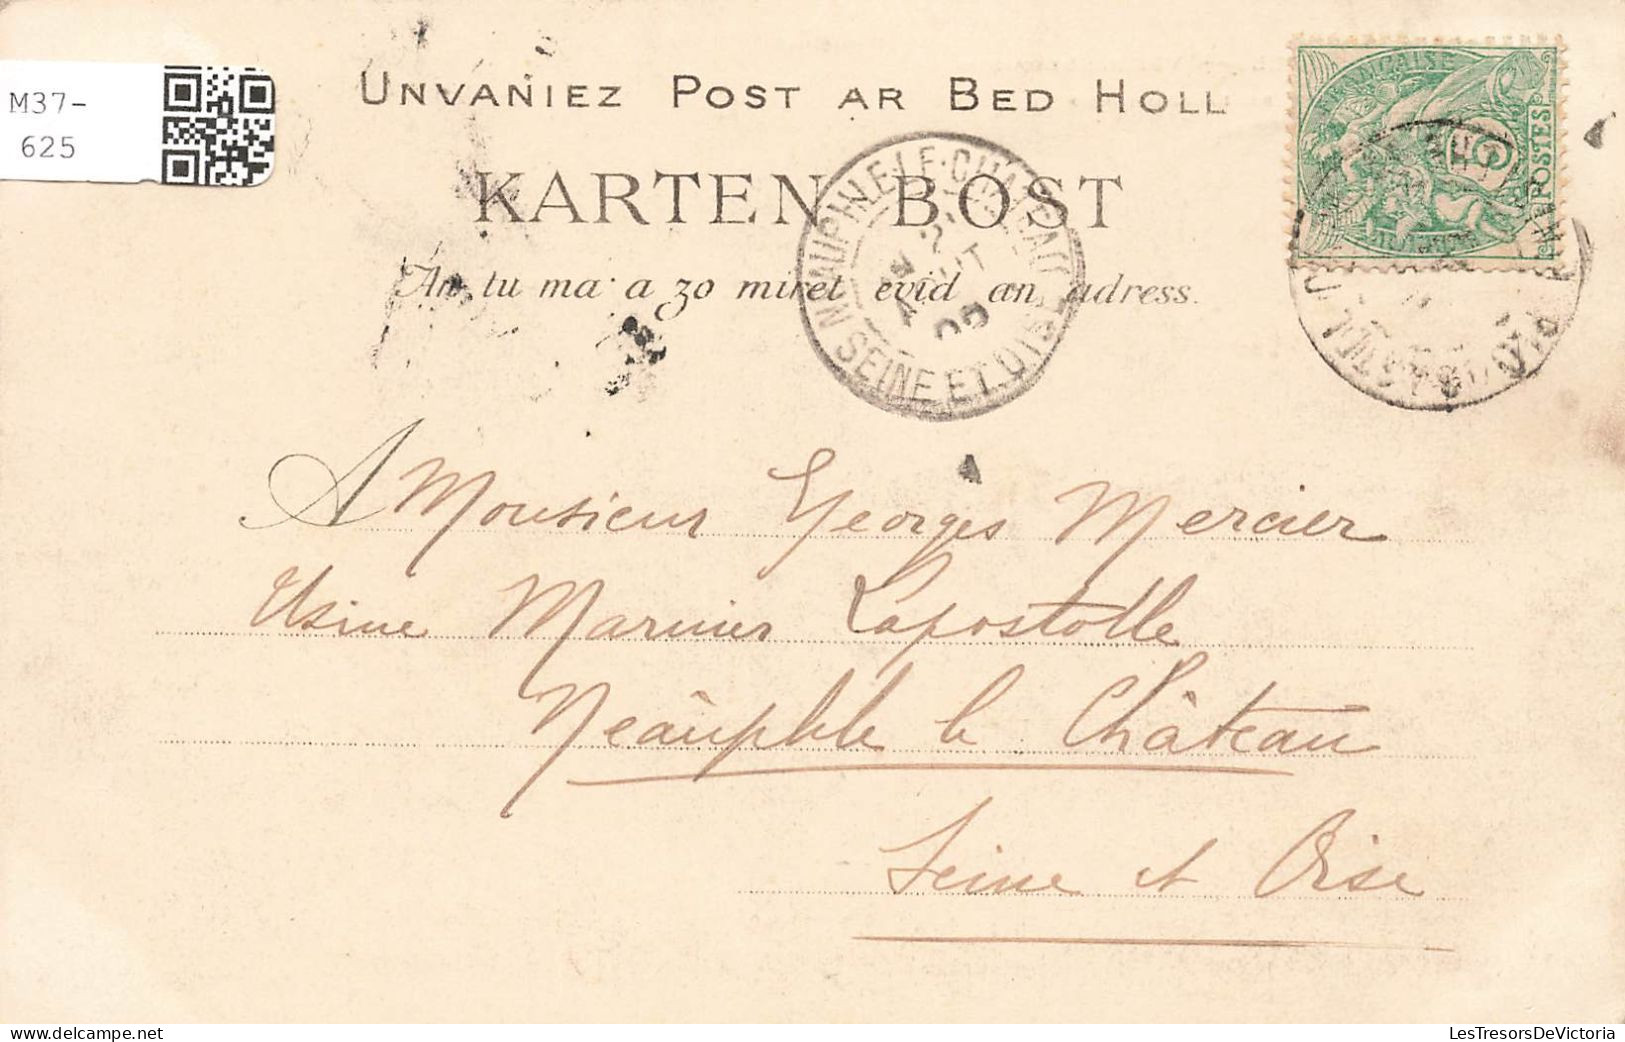 M37-
625
UNVANIEZ POST AR BED HOLL
KARTEN BOST
An tu ma a zo miret evid an adress.
NEAUPHLE-LE-CHATEAU
SEINE ET OISE
POSTES
A Monsieur Georges Mercier
Usine Marnier Lapostolle
Neauphle le Château
Seine et Oise
LesTresorsDeVictoria